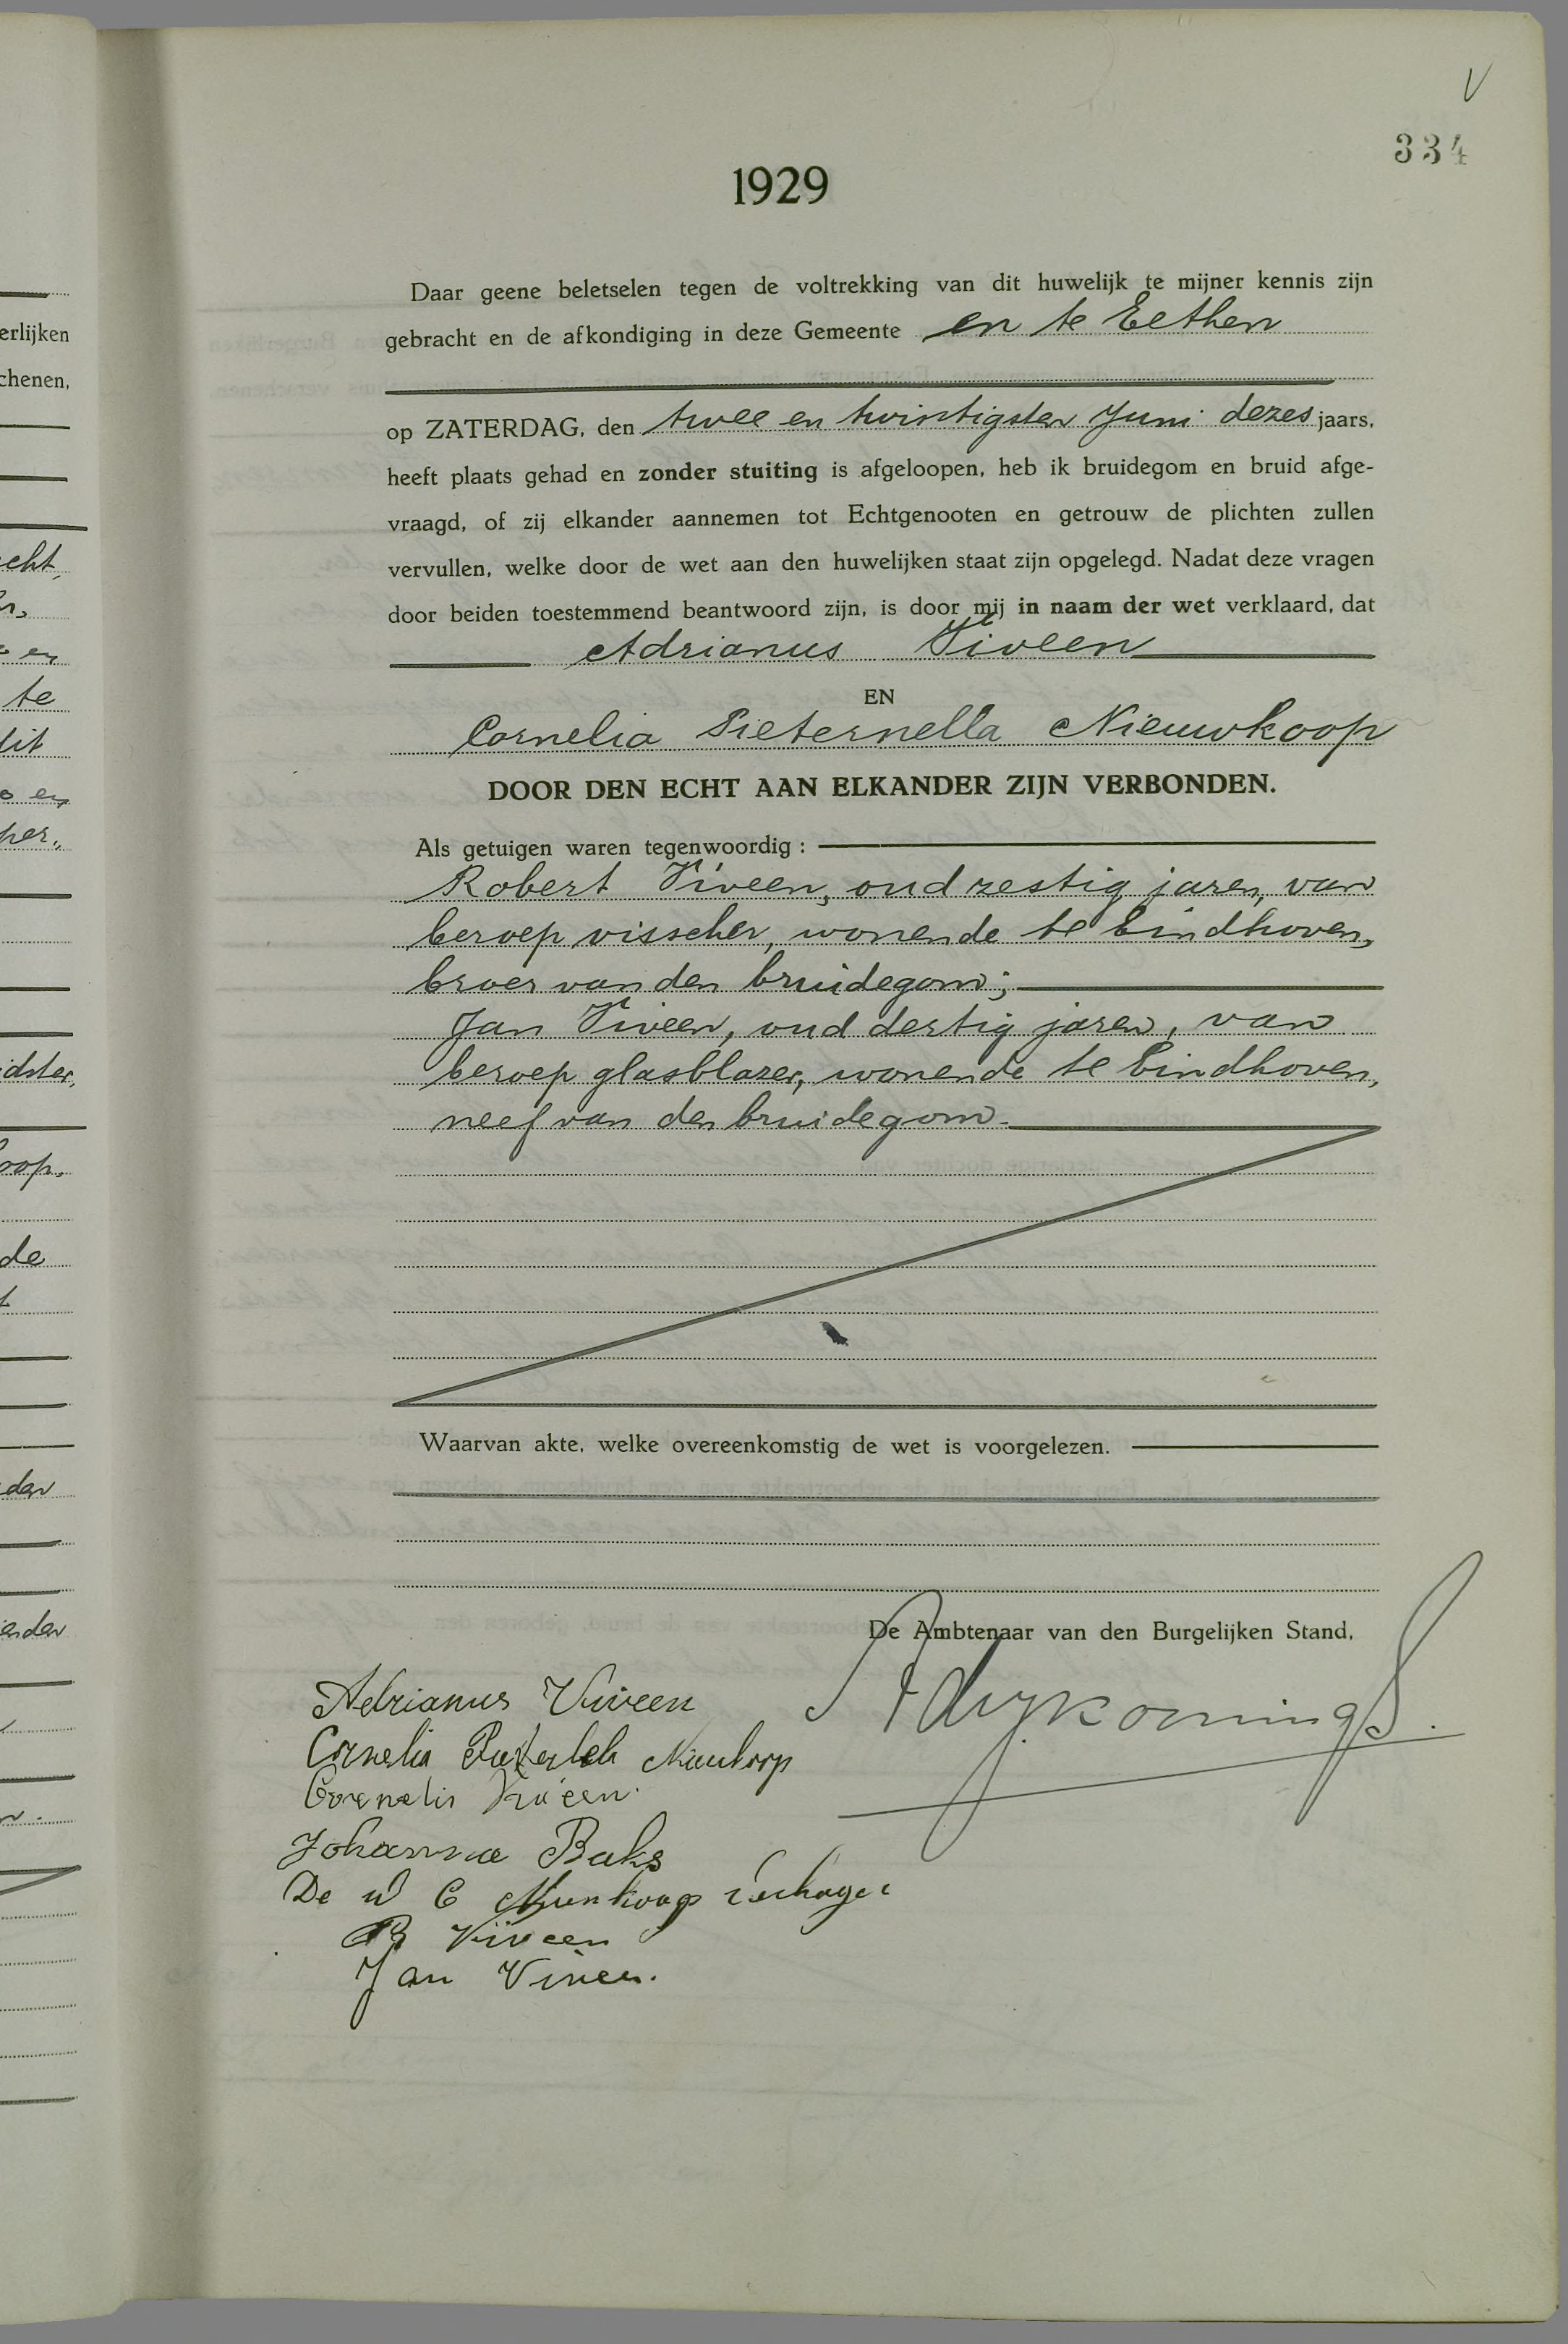 V
334
1929
Daar geene beletselen tegen de voltrekking van dit huwelijk te mijner kennis zijn
gebracht en de afkondiging in deze Gemeente en te Eethen
op ZATERDAG, den twee en twintigsten Juni dezes jaars,
heeft plaats gehad en zonder stuiting is afgeloopen, heb ik bruidegom en bruid afge-
vraagd, of zij elkander aannemen tot Echtgenooten en getrouw de plichten zullen
vervullen, welke door de wet aan den huwelijken staat zijn opgelegd. Nadat deze vragen
door beiden toestemmend beantwoord zijn, is door mij in naam der wet verklaard, dat
Adrianus Viveen
EN
Cornelia Pieternella Nieuwkoop
DOOR DEN ECHT AAN ELKANDER ZIJN VERBONDEN.
Als getuigen waren tegenwoordig :
Robert Viveen, oud zestig jaren, van
beroep visscher, wonende te Eindhoven,
broer van den bruidegom;
Jan Viveen, oud dertig jaren, van
beroep glasblazer, wonende te Eindhoven,
neef van den bruidegom.
Waarvan akte, welke overeenkomstig de wet is voorgelezen.
De Ambtenaar van den Burgelijken Stand,
Adrianus Viveen
Cornelia
Cornelis Viveen
Johanna Baks
De W C
R Viveen
Jan Viveen.
erlijken
chenen,
echt,
en
te
dit
en
per.
idster,
oop.
de